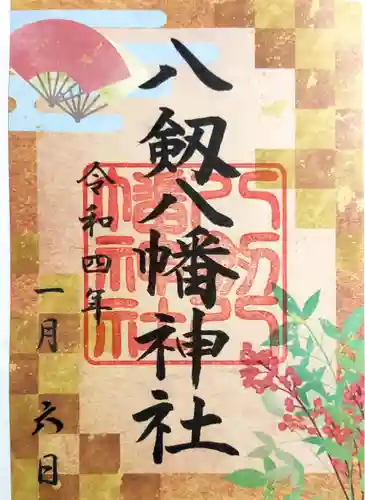 八剱八幡神社
令和四年
一月六日
八剱八幡神社